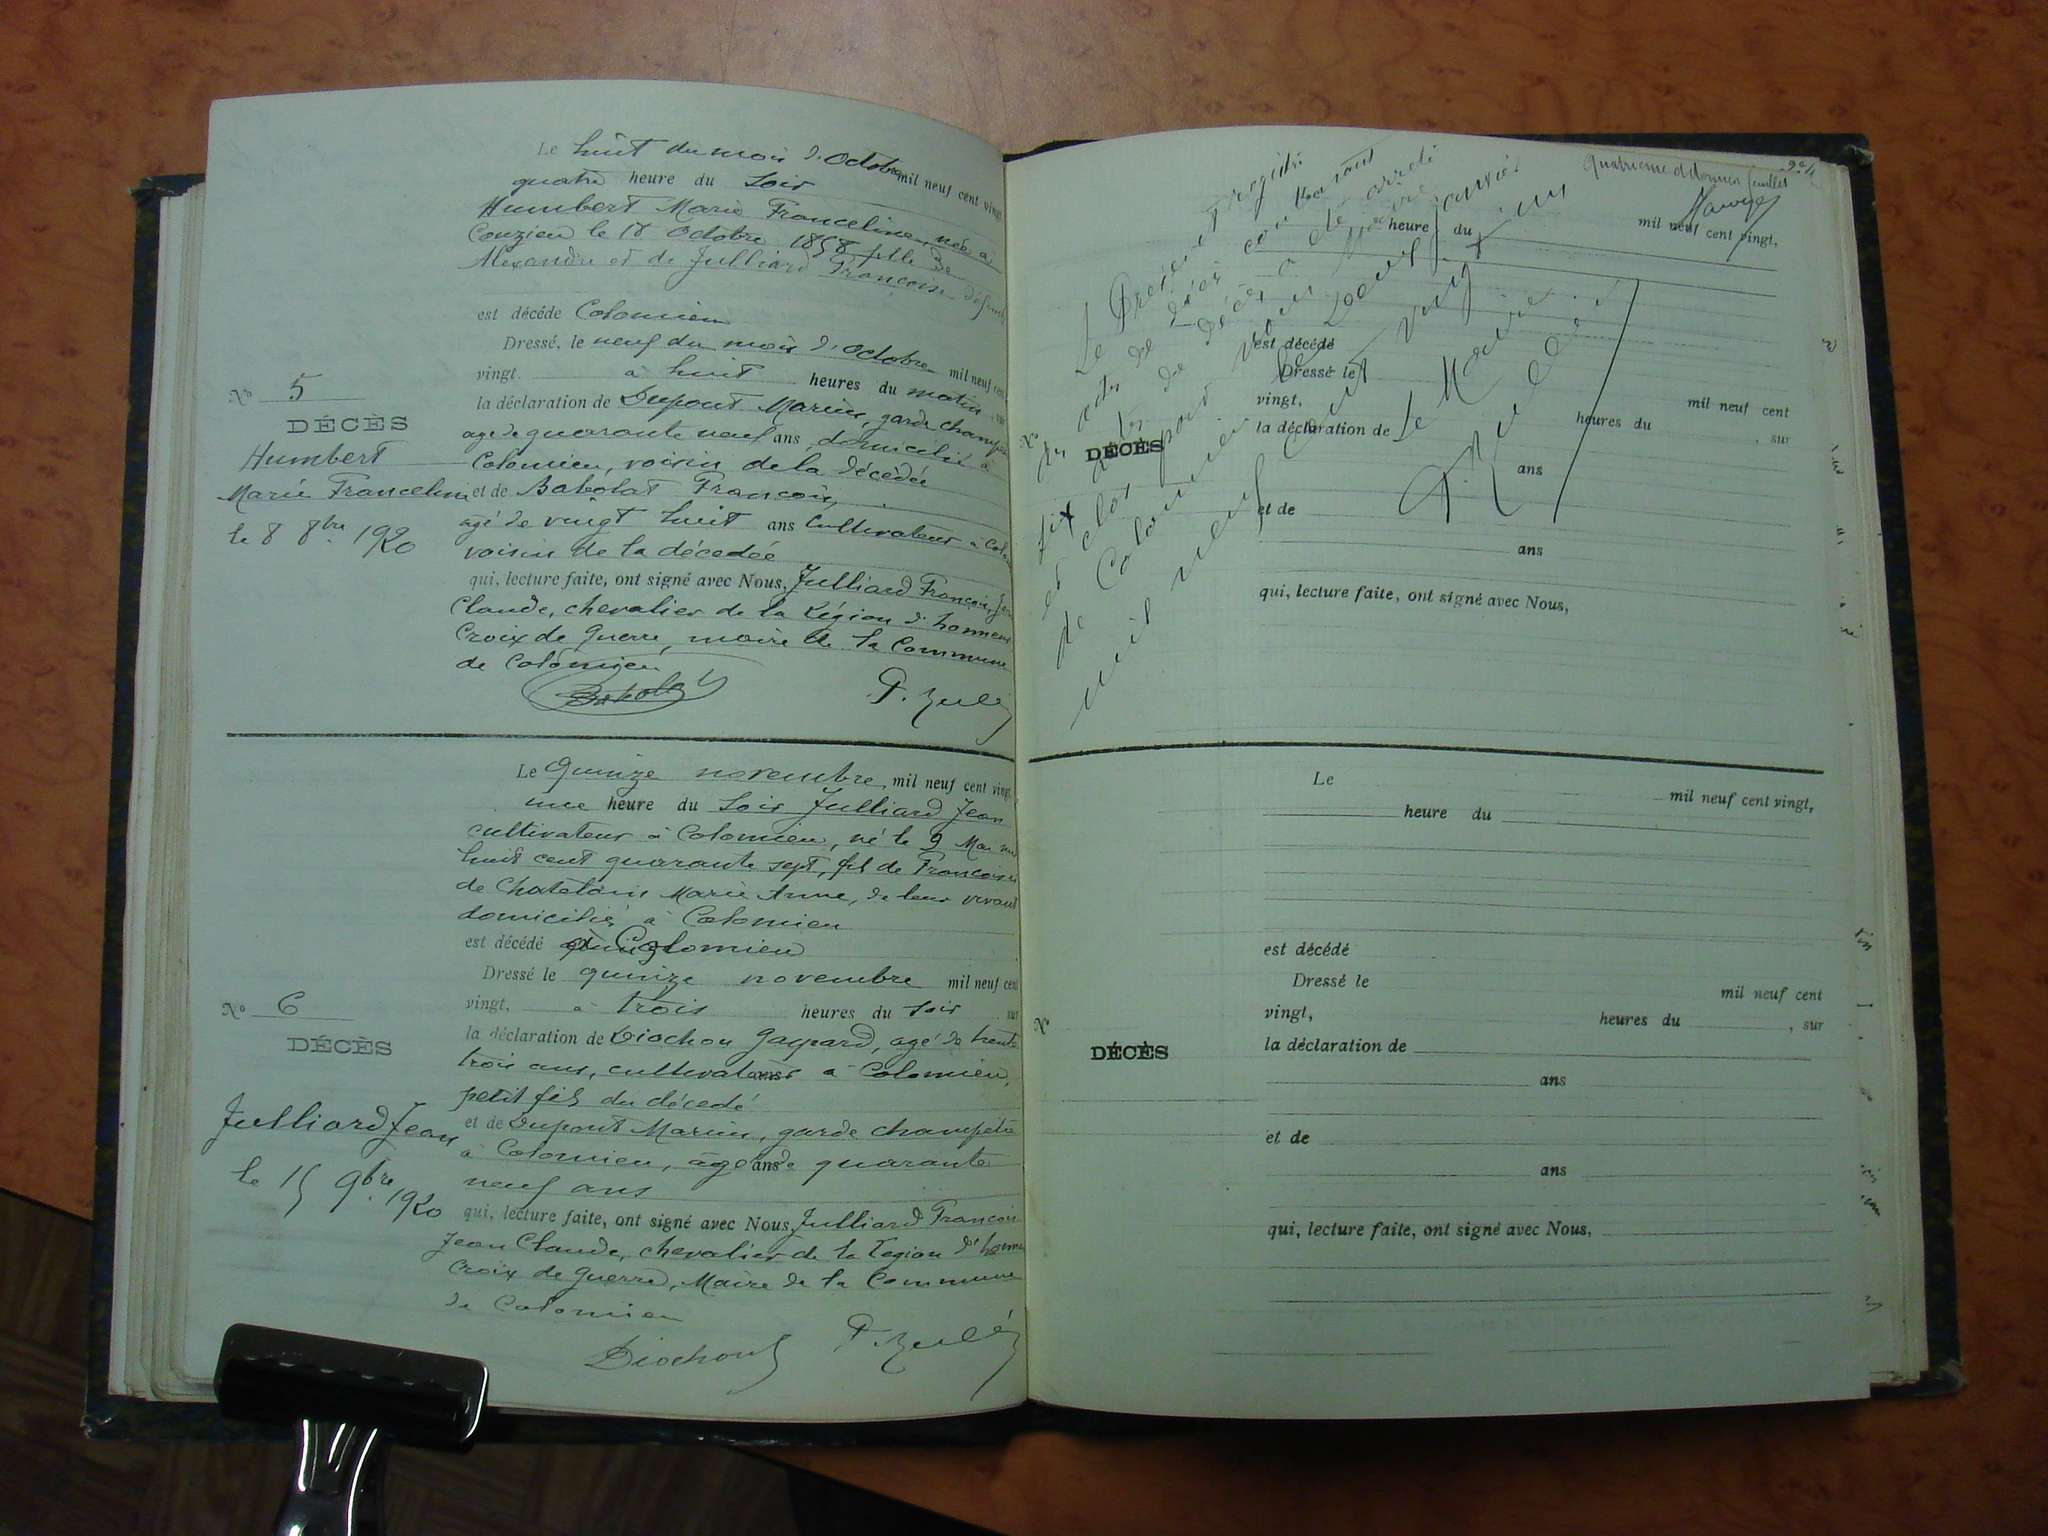 Le huit du mois d'Octobre mil neuf cent vingt
quatre heure du Soir
Humbert Marie Franceline, née à
Conzieu le 18 Octobre 1858 fille de
Alexandre et de Julliard Françoise défunts
est décédé Colomieu
Dressé, le neuf du mois d'octobre mil neuf cent
vingt. à huit heures du matin, sur
N° 5
la déclaration de Dupont Marius, garde champêtre
DÉCÈS
agé de quarante neuf ans, domicilié à
Humbert
Colomieu, voisin de la décédée
Marie Franceline
et de Babolat François,
agé de vingt huit ans Cultivateur à Colo
le 8 8bre 1920
voisin de la décedée
qui, lecture faite, ont signé avec Nous, Julliard François, Jean
Claude, chevalier de la Légion d'honneur
Croix de Guerre, maire de la Commune
de Colomieu
Babolat
Le Quinze novembre, mil neuf cent vingt,
une heure du Soir Julliard Jean
cultivateur à Colomieu, né le 9 Mai mil
huit cent quarante sept, fils de François et
de Chatelain Marie Anne, de leur vivant
domicilié à Colomieu
est décédé à Colomieu
Dressé le quinze novembre mil neuf cent
vingt, à trois heures du soir, sur
N° 6
la déclaration de Diochon Gaspard, agé de trente
DÉCÈS
trois ans, cultivateur à Colomieu,
petit fils du décedé
Julliard Jean
et de Dupont Marius, garde champêtre
à Colomieu, âgé ans de quarante
le 15 9bre 1920
neuf ans
qui, lecture faite, ont signé avec Nous, Julliard François
Jean Claude, chevalier de la Légion d'honneur
Croix de Guerre, Maire de la Commune
de Colomieu
Diochon
Quatrième et dernier feuillet
Le Présent registre
des actes de décès contenant
six actes de décès a été arrêté
et clos par nous Maire
de Colomieu le deux janvier
mil neuf cent vingt un
Le Maire
heure du mil neuf cent vingt,
est décédé
Dressé le mil neuf cent
vingt, heures du , sur
la déclaration de
N°
DÉCÈS
ans
et de
ans
qui, lecture faite, ont signé avec Nous,
Le mil neuf cent vingt,
heure du
est décédé
Dressé le mil neuf cent
vingt, heures du , sur
N°
la déclaration de
DÉCÈS
ans
et de
ans
qui, lecture faite, ont signé avec Nous,